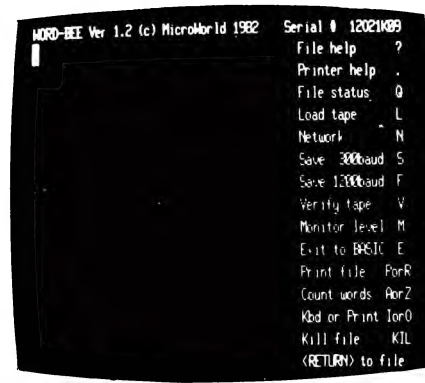 WORD-BEE Ver 1.2 (c) MicroWorld 1982 Serial # 12021K09
File help ?
Printer help .
File status Q
Load tape L
Network N
Save 300baud S
Save 1200baud F
Verify tape V
Monitor level M
Exit to BASIC E
Print file PorR
Count words AorZ
Kbd or Print IorO
Kill file KIL
<RETURN> to file